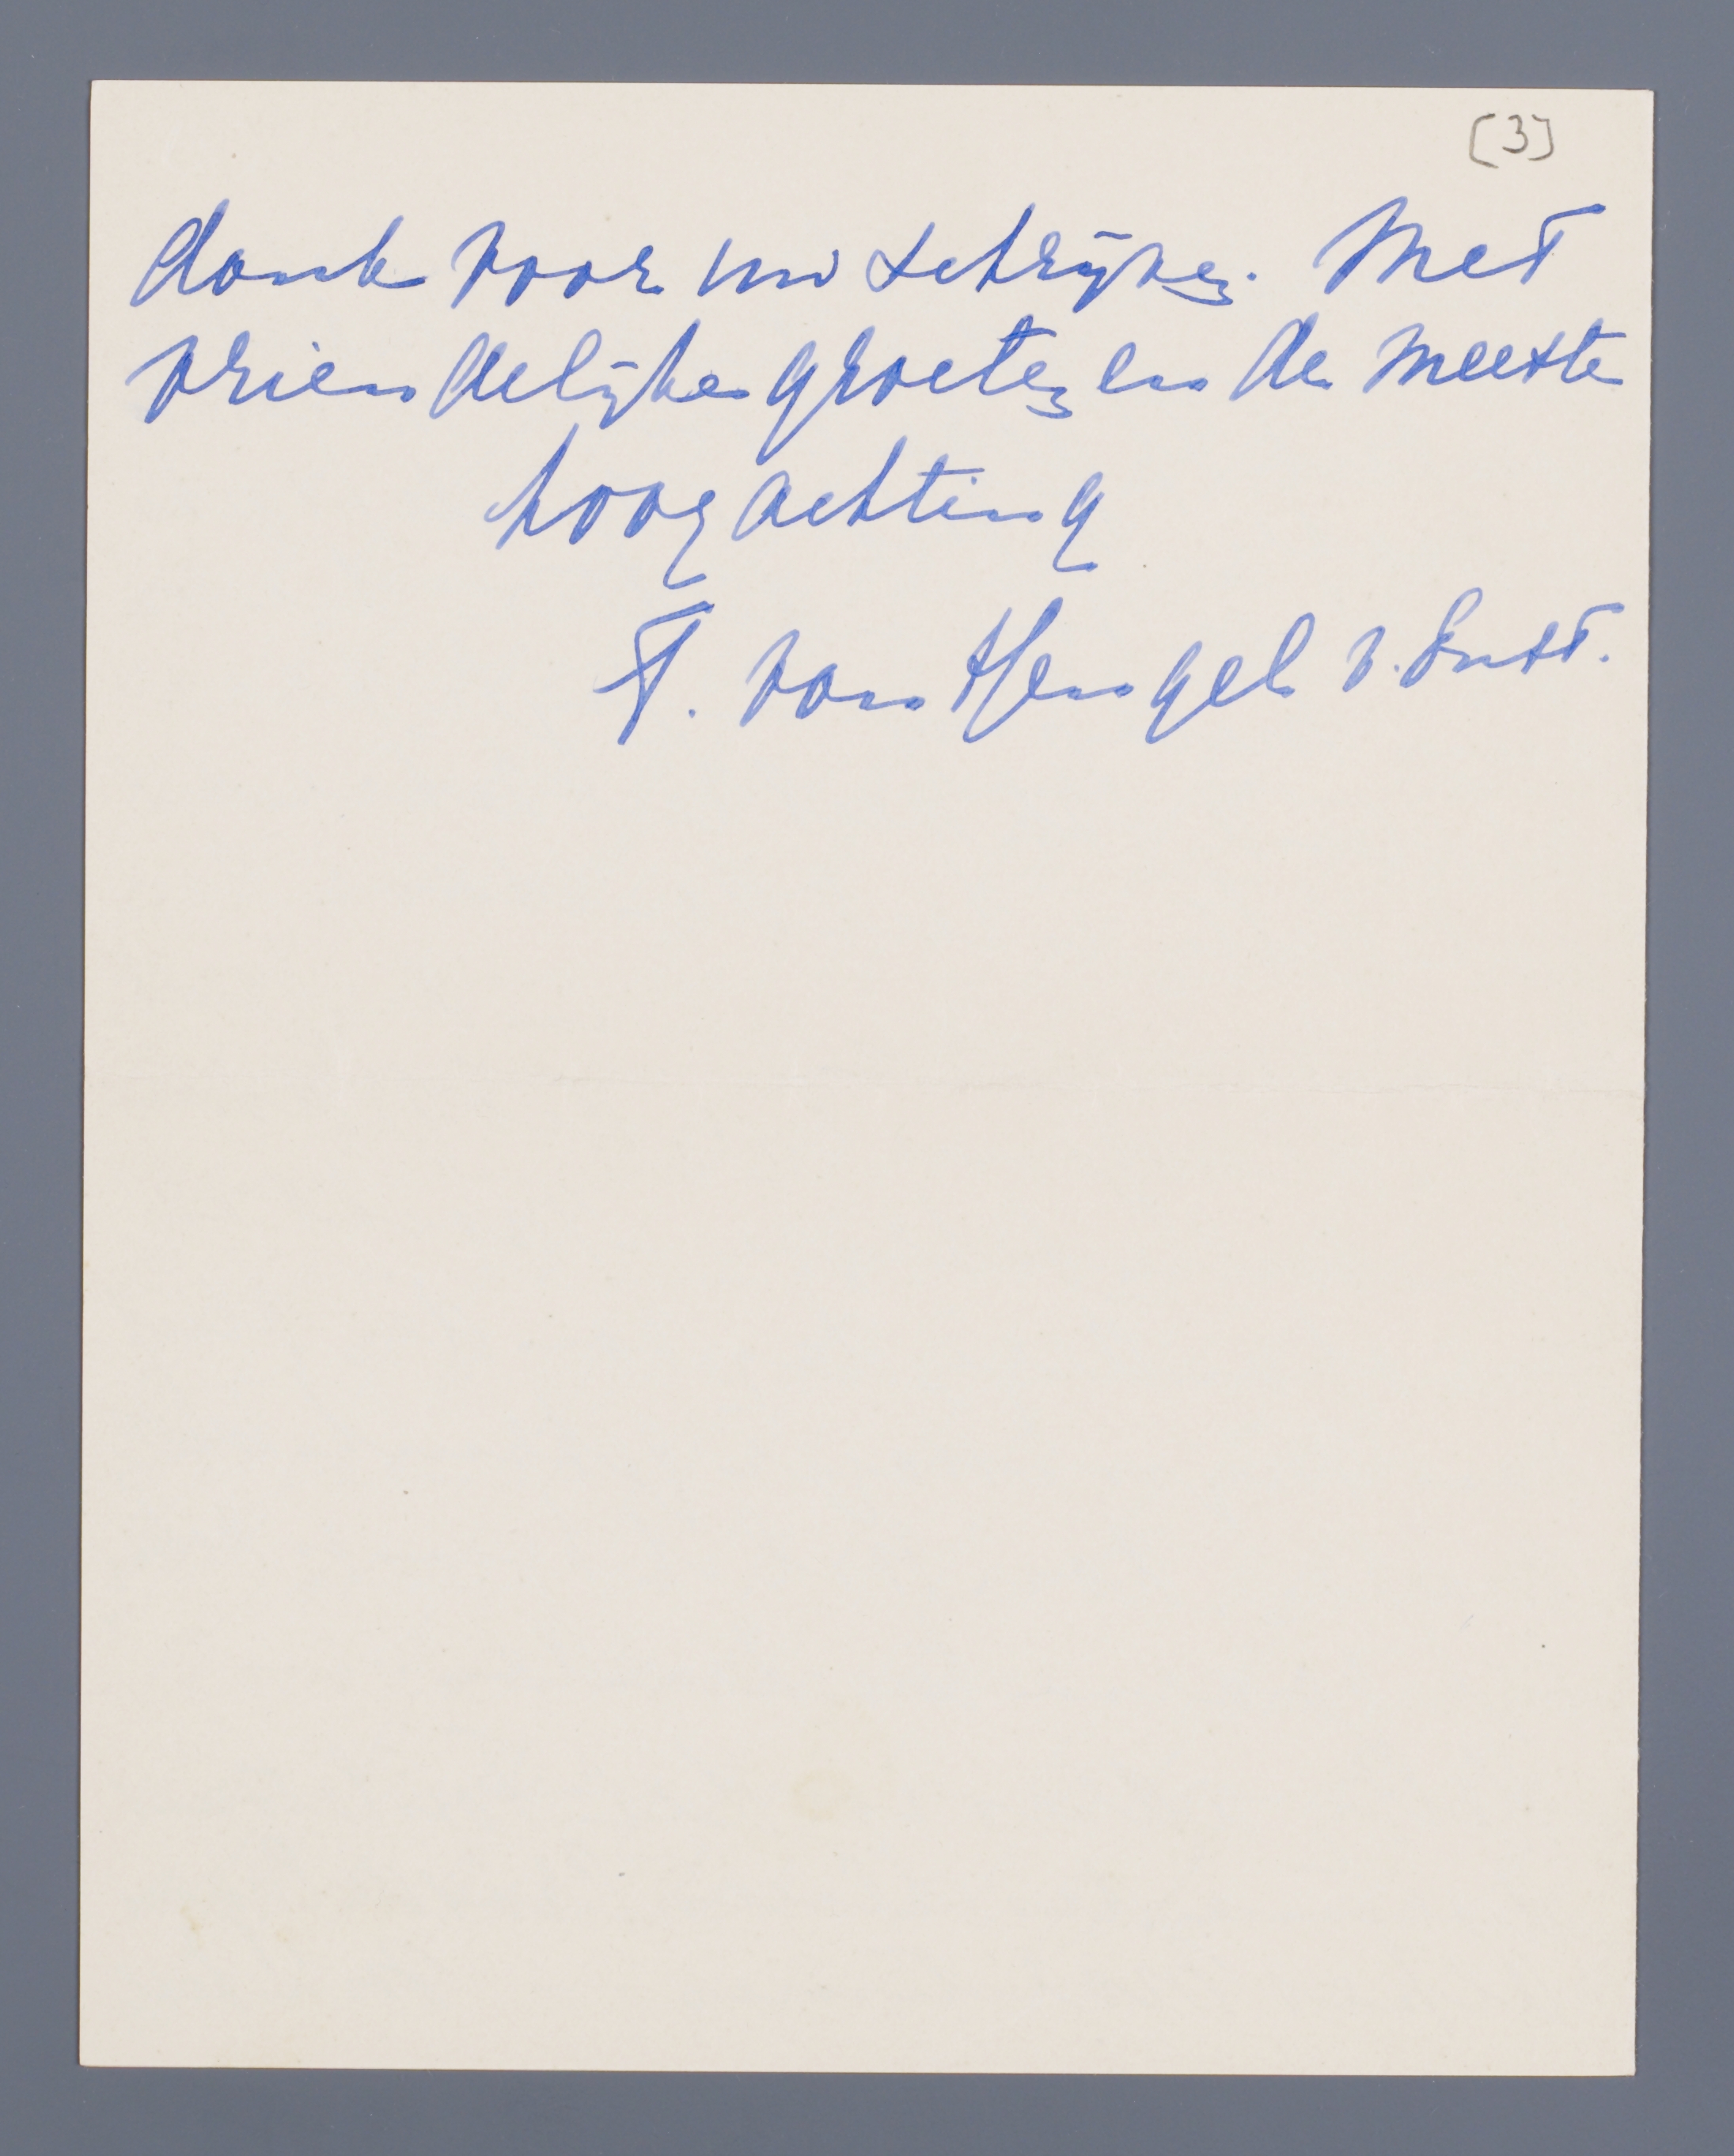 [3]
dank voor uw schrijven. Met
vriendelijke groeten en de meeste
hoogachting
T. van Hengel v.